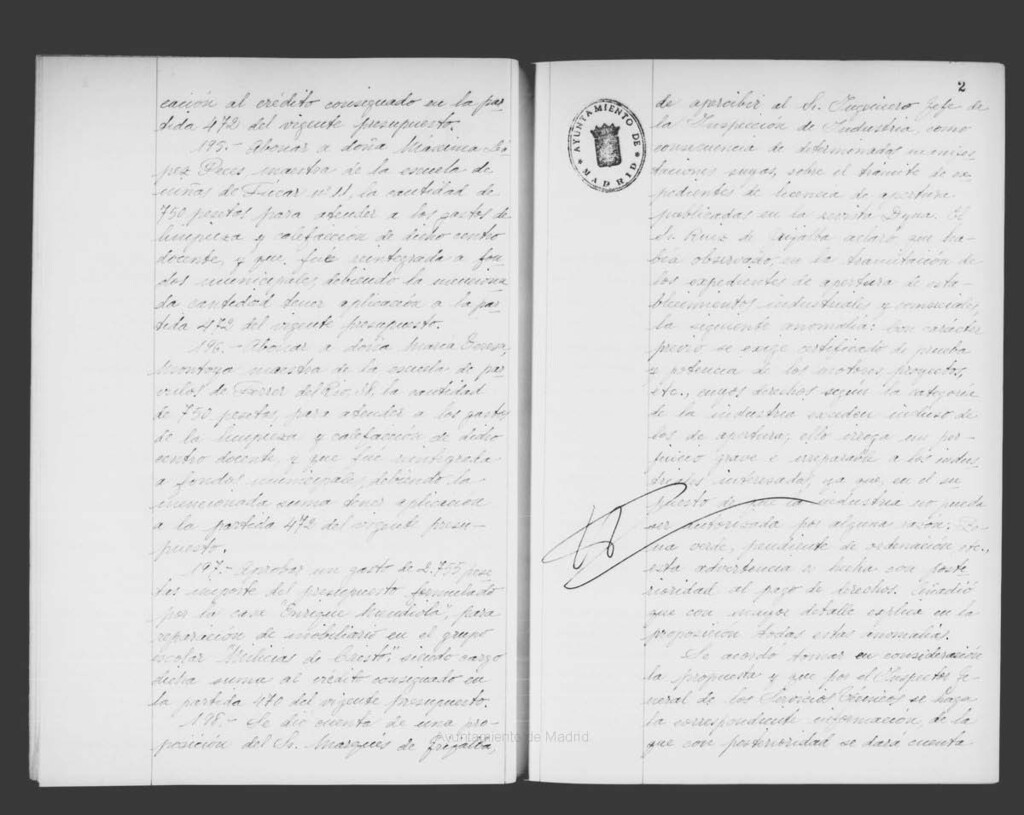 cación al crédito consignado en la par-
tida 472 del vigente presupuesto.
195.- Abonar a doña Máxima Ló-
pez Poces maestra de la escuela de
niñas de nº 11, la cantidad de
750 pesetas para atender a los gastos de
limpieza y calefacción de dicho centro
docente, y que fue reintegrada a fon-
dos municipales, debiendo la menciona-
da cantidad tener aplicación a la par-
tida 472 del vigente presupuesto.
196.- Abonar a doña María Teresa
Montoya maestra de la escuela de pár-
vulos de Ferrer del Río, 38, la cantidad
de 750 pesetas, para atender a los gastos
de la limpieza y calefacción, de dicho
centro docente, y que fué reintegrada
a fondos municipales, debiendo la
mencionada suma tener aplicación
a la partida 472 del vigente presu-
puesto.
197.- Aprobar un gasto de 2.755 pese-
tas importe del presupuesto formulado
por la casa "Enrique", para
reparación de mobiliario en el grupo
escolar "Milicias de Cristo", siendo cargo
dicha suma al crédito consignado en
la partida 470 del vigente presupuesto.
198.- Se dio cuenta de una pro-
posición del Sr. Marqués de Grigalba,
2
AYUNTAMIENTO DE MADRID
de apercibir al Sr. Ingeniero Jefe de
la Inspección de Industria, como
consecuencia de determinadas manifes-
taciones suyas, sobre el trámite de ex-
pedientes de licencia de apertura
publicadas en la revista Dyna. El
Sr. Ruiz de Grijalba aclaró que ha-
bía observado, en la tramitación de
los expedientes de apertura de esta-
blecimientos industriales y comerciales,
la siguiente anomalía: Con carácter
previo se exige certificado de prueba
y potencia de los motores, proyectos,
etc., cuyos derechos según la categoría
de la industria exceden incluso de
los de apertura; ello irroga un per-
juicio grave e irreparable a los indus-
triales interesados, ya que, en el su-
puesto de que la industria no pueda
ser autorizada por alguna razón: Zo-
na verde, pendiente de ordenación etc.,
esta advertencia se hacía con poste-
rioridad al pago de derechos. Añadió
que con mayor detalle explica en la
proposición todas estas anomalías.
Se acordó tomar en consideración
la propuesta y que por el Inspector Ge-
neral de los Servicios Técnicos se haga
la correspondiente información de la
que con posterioridad se dará cuenta
Ayuntamiento de Madrid